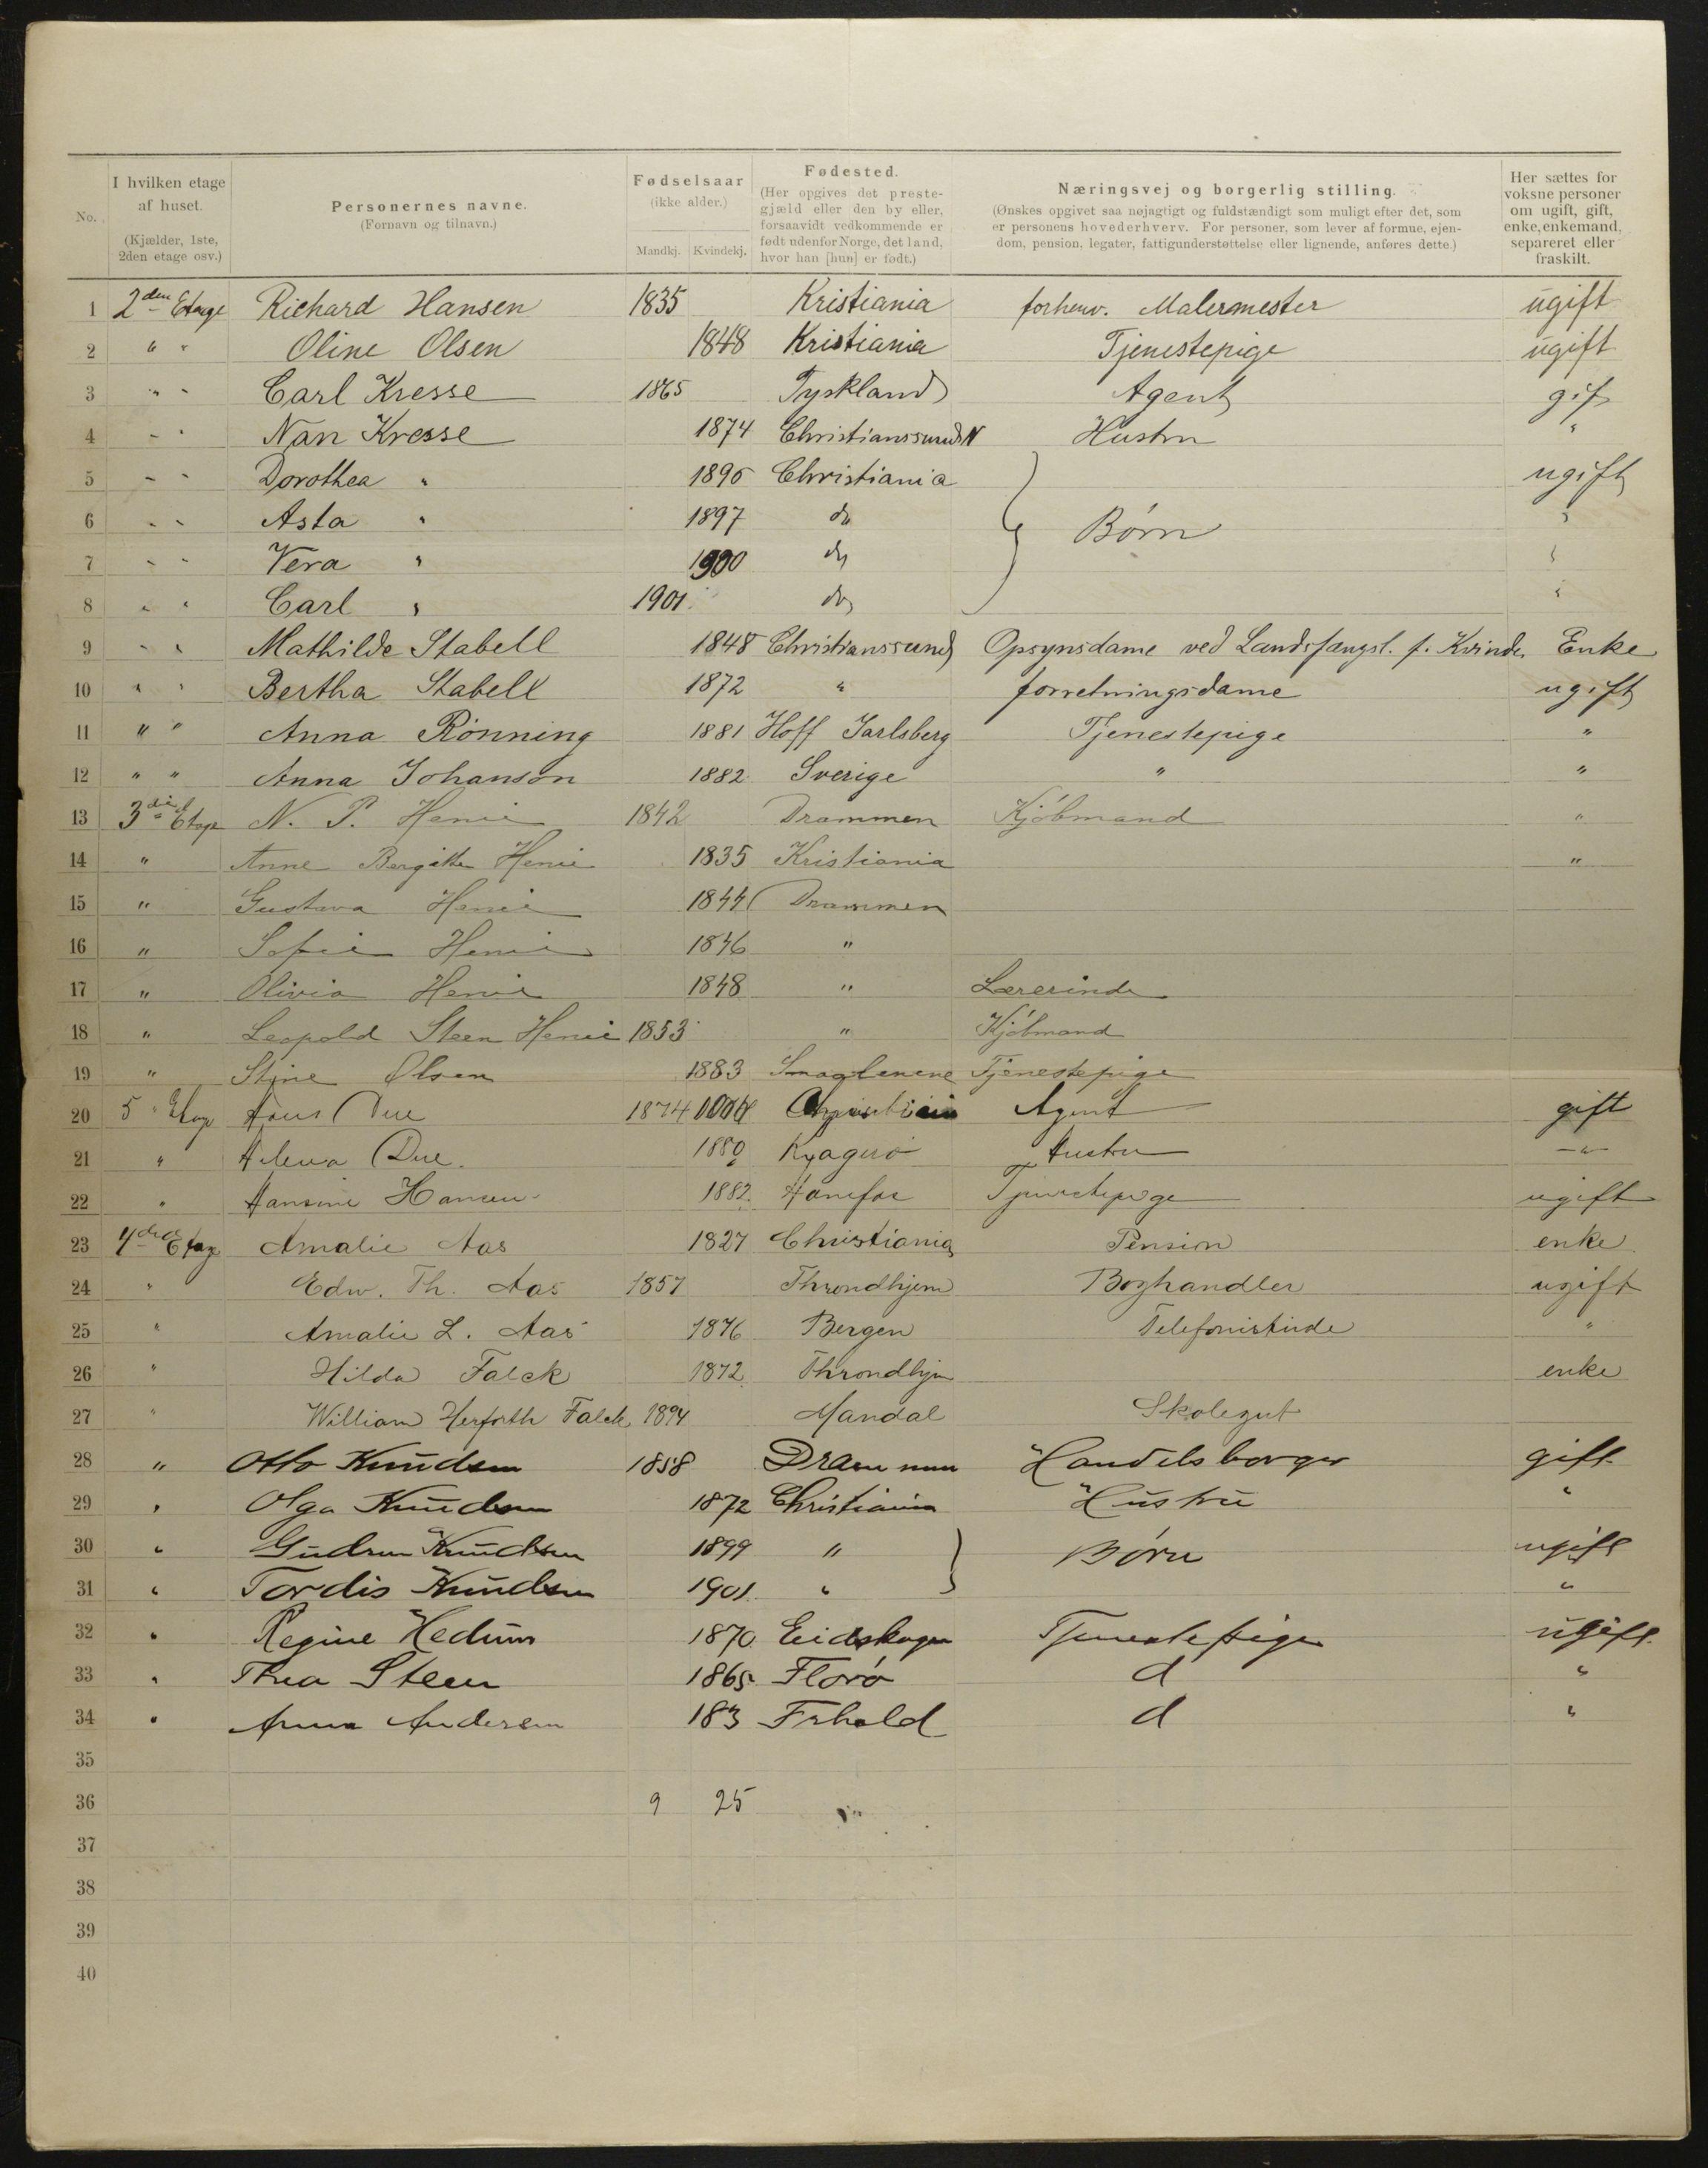 No.
I hvilken etage af huset.
(Kjælder, 1ste, 2den etage osv.)
Personernes navne.
(Fornavn og tilnavn.)
Fødselsaar
(ikke alder.)
Mandkj. Kvindekj.
Fødested.
(Her opgives det prestegjæld eller den by eller, forsaavidt vedkommende er født udenfor Norge, det land, hvor han [hun] er født.)
Næringsvej og borgerlig stilling.
(Ønskes opgivet saa nøjagtigt og fuldstændigt som muligt efter det, som er personens hovederhverv. For personer, som lever af formue, ejendom, pension, legater, fattigunderstøttelse eller lignende, anføres dette.)
Her sættes for voksne personer om ugift, gift, enke, enkemand, separeret eller fraskilt.
1 2den Etage Richard Hansen 1835 Kristiania forhenv. Malermester ugift
2 " " Oline Olsen 1848 Kristiania Tjenestepige ugift
3 " " Carl Kresse 1865 Tyskland Agent gift
4 " " Nan Kresse 1874 Christianssund N Hustru "
5 " " Dorothea " 1896 Christiania ugift
6 " " Asta " 1897 do Børn "
7 " " Vera " 1900 do "
8 " " Carl " 1901 do "
9 " " Mathilde Stabell 1848 Christianssund Opsynsdame ved Landsfangst. f. Kvinde. Enke
10 " " Bertha Stabell 1872 " forretningsdame ugift
11 " " Anna Rönning 1881 Hoff Jarlsberg Tjenestepige "
12 " " Anna Johanson 1882 Sverige " "
13 3die Etage N. P. Henie 1842 Drammen Kjöbmand "
14 " Anne Bergitte Henie 1835 Kristiania "
15 " Gustava Henie 1844 Drammen
16 " Sofie Henie 1846 "
17 " Olivia Henie 1848 " Lærerinde
18 " Leopold Steen Henie 1853 " Kjöbmand
19 " Stine Olsen 1883 Smaalenene Tjenestepige
20 5 " Etage Hans Due 1874 Christiania Agent gift
21 " Helena Due. 1880 Kragerø Hustru "
22 " Hansine Hansen 1882. Hønefos Tjenestepige ugift
23 4de Etage Amalie Aas 1827 Christiania Pension enke
24 " Edw. Th. Aas 1857 Throndhjem Boghandler ugift
25 " Amalie L. Aas 1876 Bergen Telefonistinde "
26 " Hilda Falck 1872 Throndhjem enke
27 " William Herforth Falck 1894 Mandal Skolegut
28 " Otto Knudsen 1858 Drammen Handelsborger gift
29 " Olga Knudsen 1872 Christiania Hustru "
30 " Gudrun Knudsen 1899 " Børn ugift
31 " Tordis Knudsen 1901 " "
32 " Regine Hedum 1870 Eidskogen Tjenestepige ugift
33 " Thea Steen 1865 Florø d "
34 " Anna Andersen Frhald d "
35
36 9 25
37
38
39
40